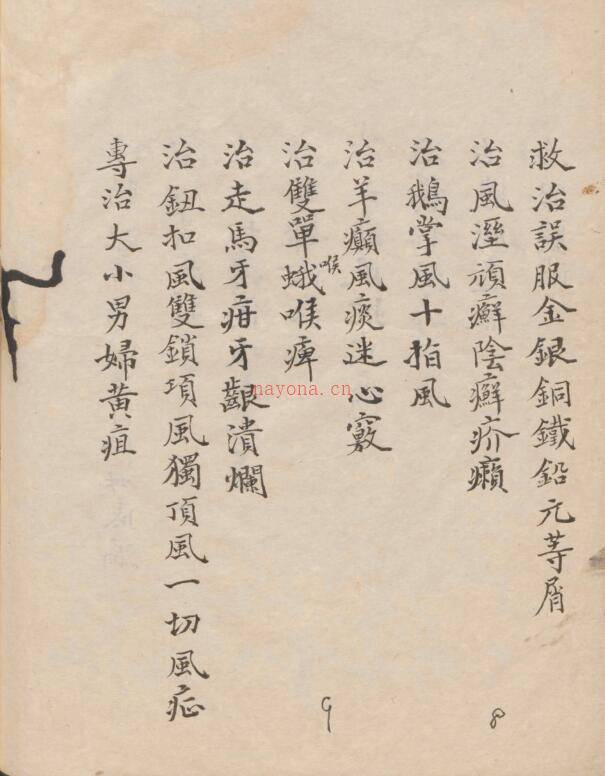 救治誤服金銀銅鐵鉛元等屑
治風溼頑癬陰癬疥癩
治鵝掌風十指風
治羊癲風痰迷心竅
治雙單蛾喉喉痺
治走馬牙疳牙齦潰爛
治鈕扣風雙鎖項風獨頂風一切風症
專治大小男婦黃疸
nayona.cn
9
8